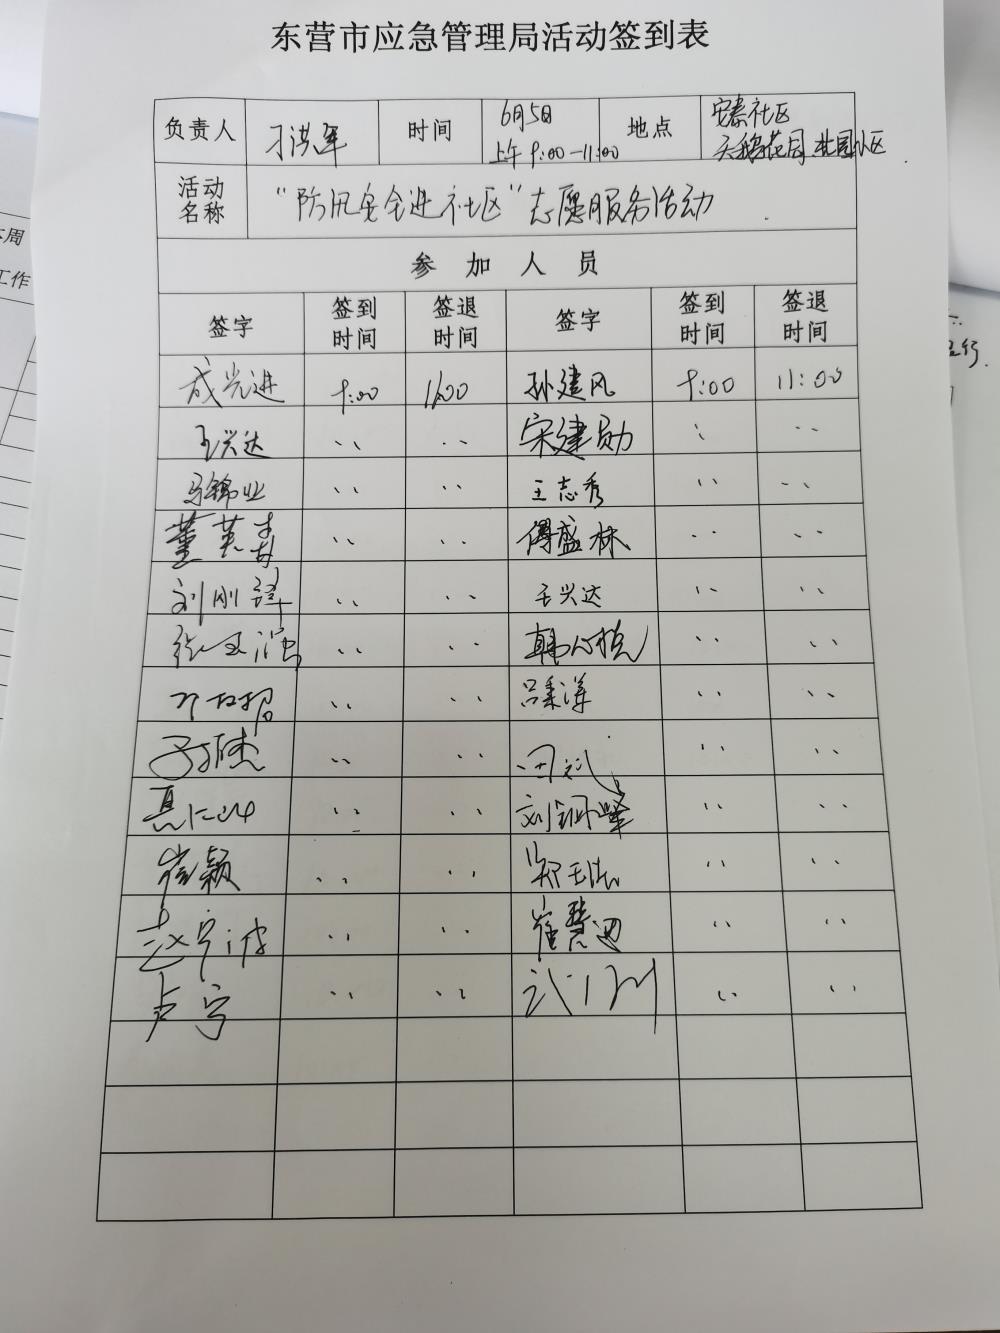 东营市应急管理局活动签到表
负责人 刁洪军 时间 6月5日 上午 9:00-11:00 地点 安泰社区 天鹅花园北园小区
活动名称 "防汛安全进社区"志愿服务活动
参加人员
签字 签到时间 签退时间 签字 签到时间 签退时间
成光进 9:00 11:00 孙建风 9:00 11:00
王兴达 、、 、、 宋建勋 、、 、、
马锦业 、、 、、 王志秀 、、 、、
董 、、 、、 傅盛林 、、 、、
刘刚 、、 、、 王兴达 、、 、、
、、 、、 韩 、、 、、
、、 、、 吕秉泽 、、 、、
、、 、、 田 、、 、、
、、 、、 刘 峰 、、 、、
崔颖 、、 、、 郑玉 、、 、、
赵宁波 、、 、、 崔慧 、、 、、
卢宁 、、 、、 武 、、 、、
周
工作